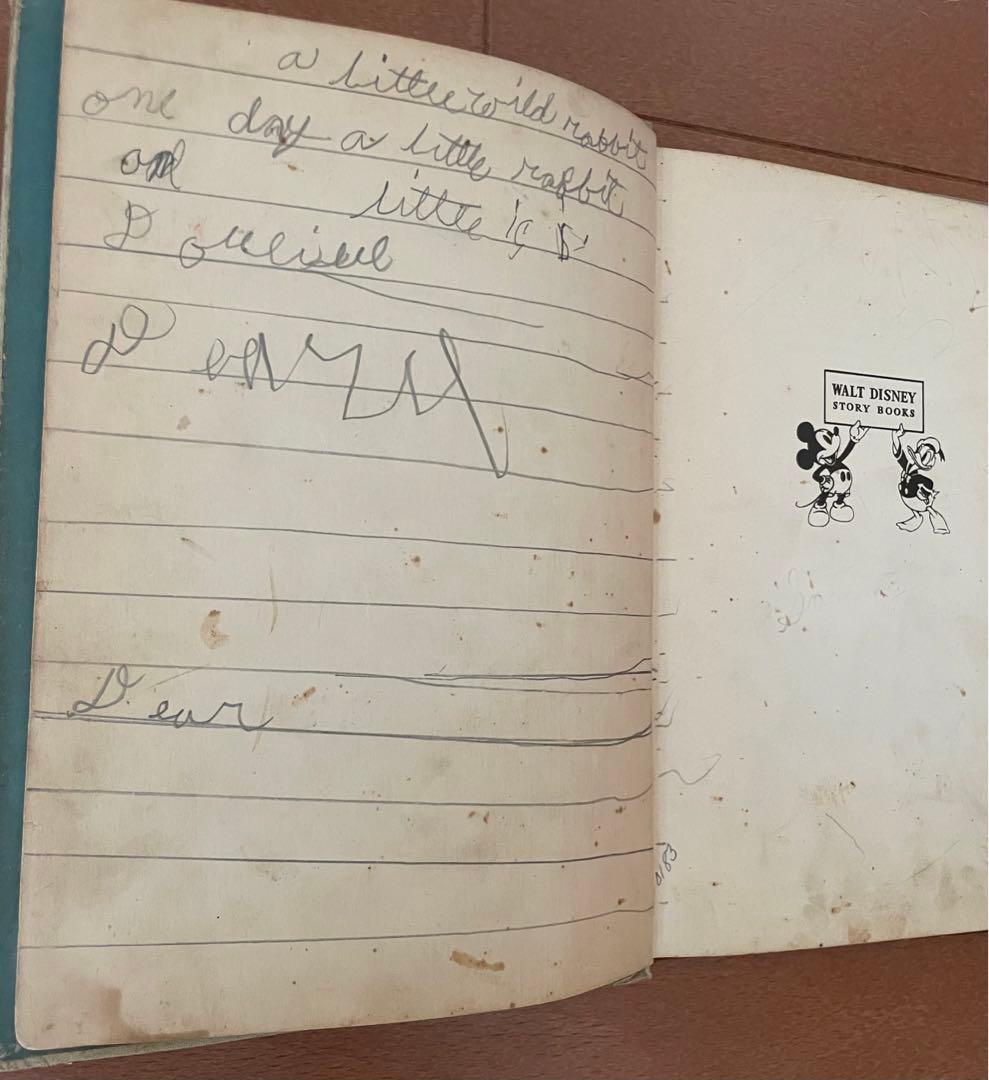 a little wild rabbit
one day a little rabbit
one little is
D
D
Dear
WALT DISNEY
STORY BOOKS